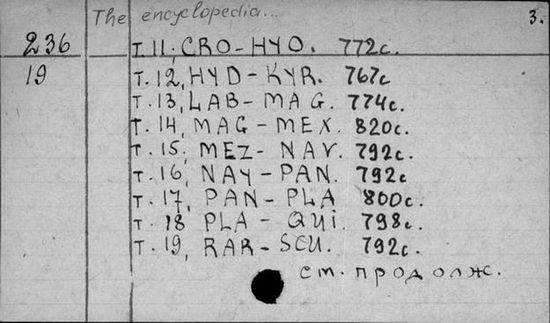 The encyclopedia... 3.
236 Т. 11, CRO-HYO. 772с.
19 Т. 12, HYD-KYR. 767с
Т. 13, LAB-MAG. 774с.
Т. 14, MAG-MEX. 820с.
Т. 15, MEZ-NAV. 792с.
Т. 16, NAY-PAN. 792с
Т. 17, PAN-PLA 800с.
Т. 18 PLA-QUI. 798с.
Т. 19, RAR-SCU. 792с.
см. продолж.